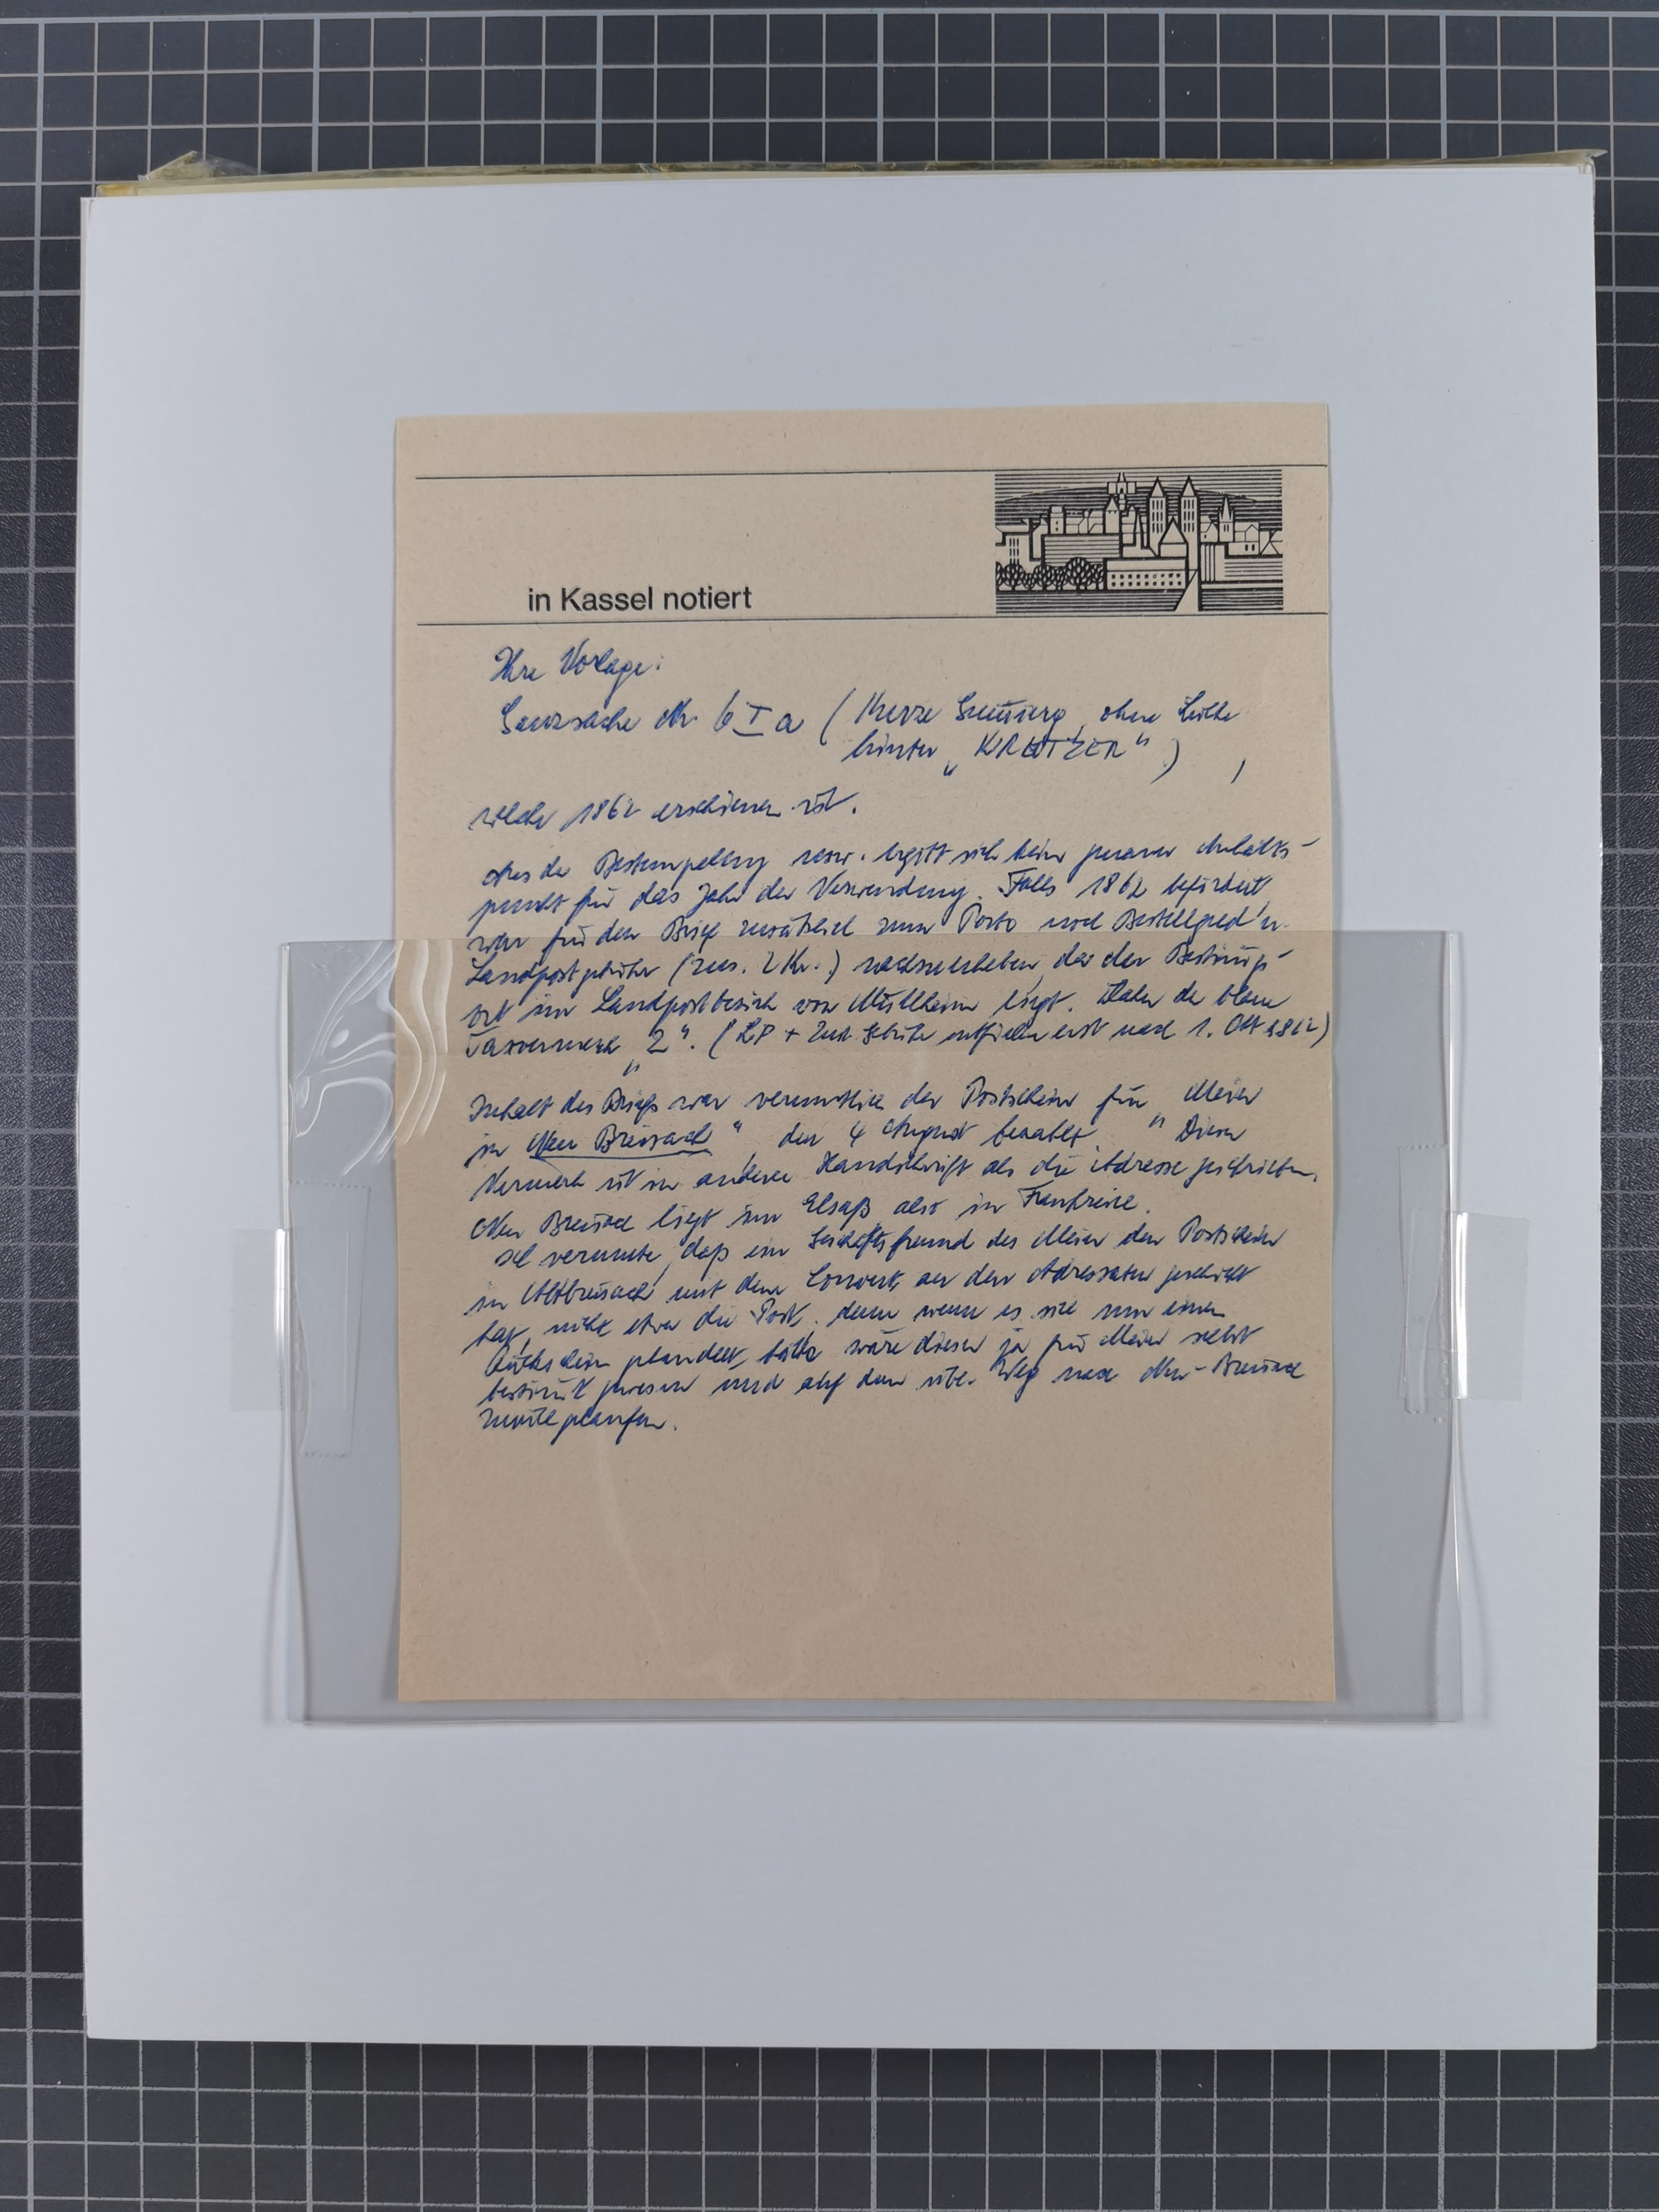 in Kassel notiert
Ihre Vorlage:
Ganzsache Nr. 6 I a (kurze Gummierg, ohne Lücke
hinter „KREUTZER“),
welche 1862 erschienen ist.
Aus der Bestempelung ergibt sich kein genauer Anhalts-
punkt für das Jahr der Verwendung. Falls 1862 befördert,
war für den Brief zusätzlich zum Porto noch Bestellgeld u.
Landpostgebühr (zus. 2 Kr.) nachzuerheben, da der Bestimgs-
ort im Landpostbezirk von Müllheim liegt. Daher der blaue
Taxvermerk „2“. (LP + Zust. Gebühr entfielen erst nach 1. Okt 1862)
Inhalt des Briefs war vermutlich der Postschein für „Meier
in Neu Breisach“ den 4 August bezahlt. “ Dieser
Vermerk ist in anderer Handschrift als die Adresse geschrieben.
Neu Breisach liegt im Elsaß also in Frankreich.
Ich vermute, daß ein Geschäftsfreund des Meier den Postschein
in Altbreisach mit dem Couvert an den Adressaten geschickt
hat, nicht etwa die Post, denn wenn es sich um einen
Rückschein gehandelt hätte wäre dieser ja für Meier selbst
bestimmt gewesen und auf dem übl. Weg nach Neu-Breisach
zurückgelaufen.